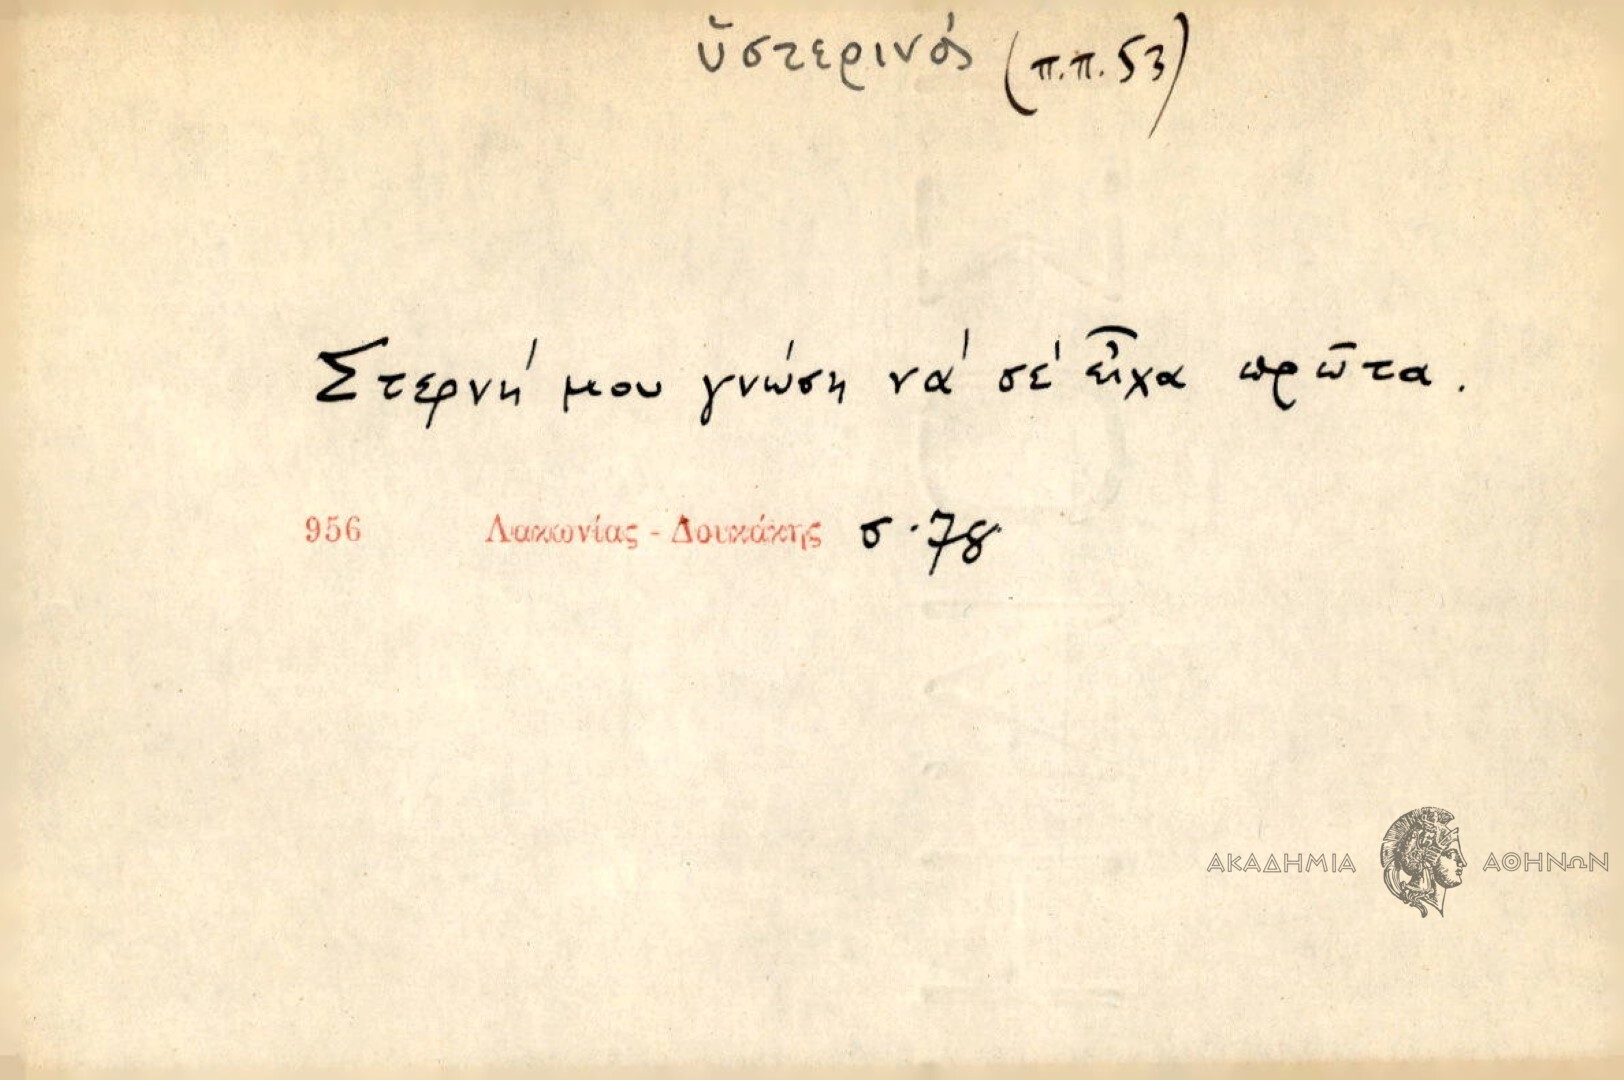 ὑστερινός (π.π. 53)
Στερνή μου γνώση νά σέ εἶχα πρῶτα.
956 Λακωνίας - Δουκάκης σ. 78
ΑΚΑΔΗΜΙΑ ΑΘΗΝΩΝ